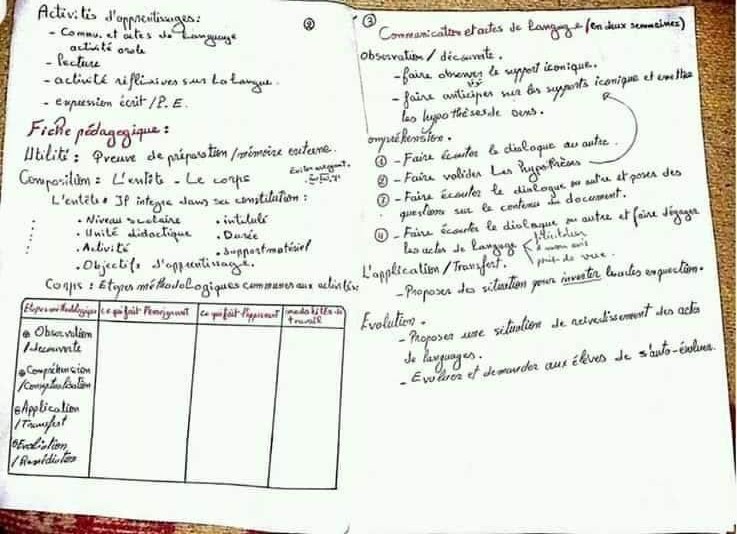 Activités d'apprentissages :
②
- Commu. et actes de Langage
activité orale
- Lecture
- activité réflixives sur La Langue.
- expression écrit / P. E.
Fiche pédagogique :
Utilité : Preuve de préparation / mémoire externe.
Composition : L'entête - Le corps
L'entête : IP intègre dans sa constitution :
• Niveau scolaire • intitulé
• Unité didactique • Durée
• Activité • support matériel
• Objectifs d'apprentissage.
Corps : Etapes méthodologiques communes aux activités
Etapes méthodologiques ce que fait l'enseignant ce que fait l'apprenant modalités de travail
• Observation
/ Découverte
• Compréhension
/ Conceptualisation
• Application
/ Transfert
• Evaluation
/ Remédiation
③
Communication et actes de Langage (en deux semaines)
observation / découverte.
- faire observer le support iconique.
- faire anticiper sur les supports iconique et emettre
les hypothèses de sens.
ompréhension.
① - Faire écouter le dialogue ou autre.
② - Faire valider Les hypothèses
③ - Faire écouter le dialogue ou autre et poser des
questions sur le contenu du document.
④ - Faire écouter le dialogue ou autre et faire dégager
les actes de langage
féliciter
d mon avis
point de vue.
L'application / Transfert.
- Proposer des situation pour investir les actes en question.
Evolution.
- Proposer une situation de réinvestissement des actes
de langages.
- Evaluer et demander aux élèves de s'auto-évaluer.